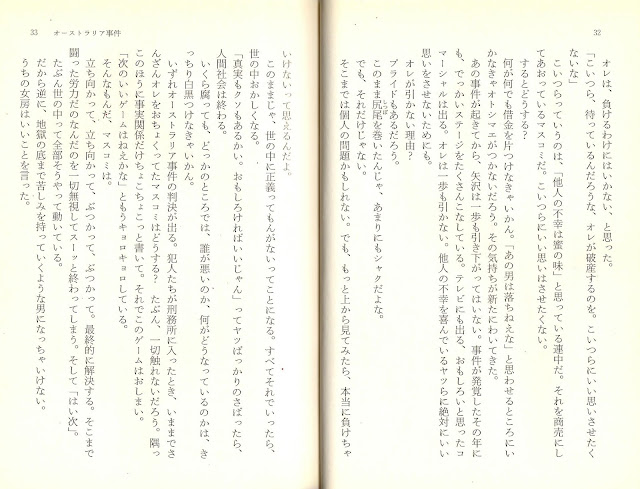 32
オレは、負けるわけにはいかない、と思った。
「こいつら、待っているんだろうな、オレが破産するのを。こいつらにいい思いさせたく
ないな」
こいつらっていうのは、「他人の不幸は蜜の味」と思っている連中だ。それを商売にし
てあおっているマスコミだ。こいつらにいい思いはさせたくない。
するとどうする？
何が何でも借金を片づけなきゃいかん。「あの男は落ちねえな」と思わせるところにい
かなきゃオトシマエがつかないだろう。その気持ちが新たにわいてきた。
あの事件が起きてから、矢沢は一歩も引き下がってはいない。事件が発覚したその年に
も、でっかいステージをたくさんこなしている。テレビにも出る、おもしろいと思ったコ
マーシャルは出る。オレは一歩も引かない。他人の不幸を喜んでいるヤツらに絶対にいい
思いをさせないためにも。
オレが引かない理由？
プライドもあるだろう。
このまま尻尾を巻いたんじゃ、あまりにもシャクだよな。
しっぽ
でも、それだけじゃない。
そこまでは個人の問題かもしれない。でも、もっと上から見てみたら、本当に負けちゃ
33 オーストラリア事件
いけないって思えるんだよ。
このままじゃ、世の中に正義ってもんがないってことになる。すべてそれでいったら、
世の中おかしくなる。
「真実もクソもあるかい。おもしろければいいじゃん」ってヤツばっかりのさばったら、
人間社会は終わる。
いくら腐っても、どっかのところでは、誰が悪いのか、何がどうなっているのかは、き
っちり白黒つけなきゃいかん。
いずれオーストラリア事件の判決が出る。犯人たちが刑務所に入ったとき、いままでさ
んざんオレをおちょくってたマスコミはどうする？ たぶん、一切触れないだろう。隅っ
このほうに事実関係だけちょこちょこっと書いて。それでこのゲームはおしまい。
「次のいいゲームはねえかな」ともうキョロキョロしている。
そんなもんだ、マスコミは。
立ち向かって、立ち向かって、ぶつかって、ぶつかって。最終的に解決する。そこまで
闘った労力だのなんだのを一切無視してスーッと終わってしまう。そして「はい次」。
たぶん世の中って全部そうやって動いている。
だから逆に、地獄の底まで苦しみを持っていくような男になっちゃいけない。
うちの女房はいいことを言った。